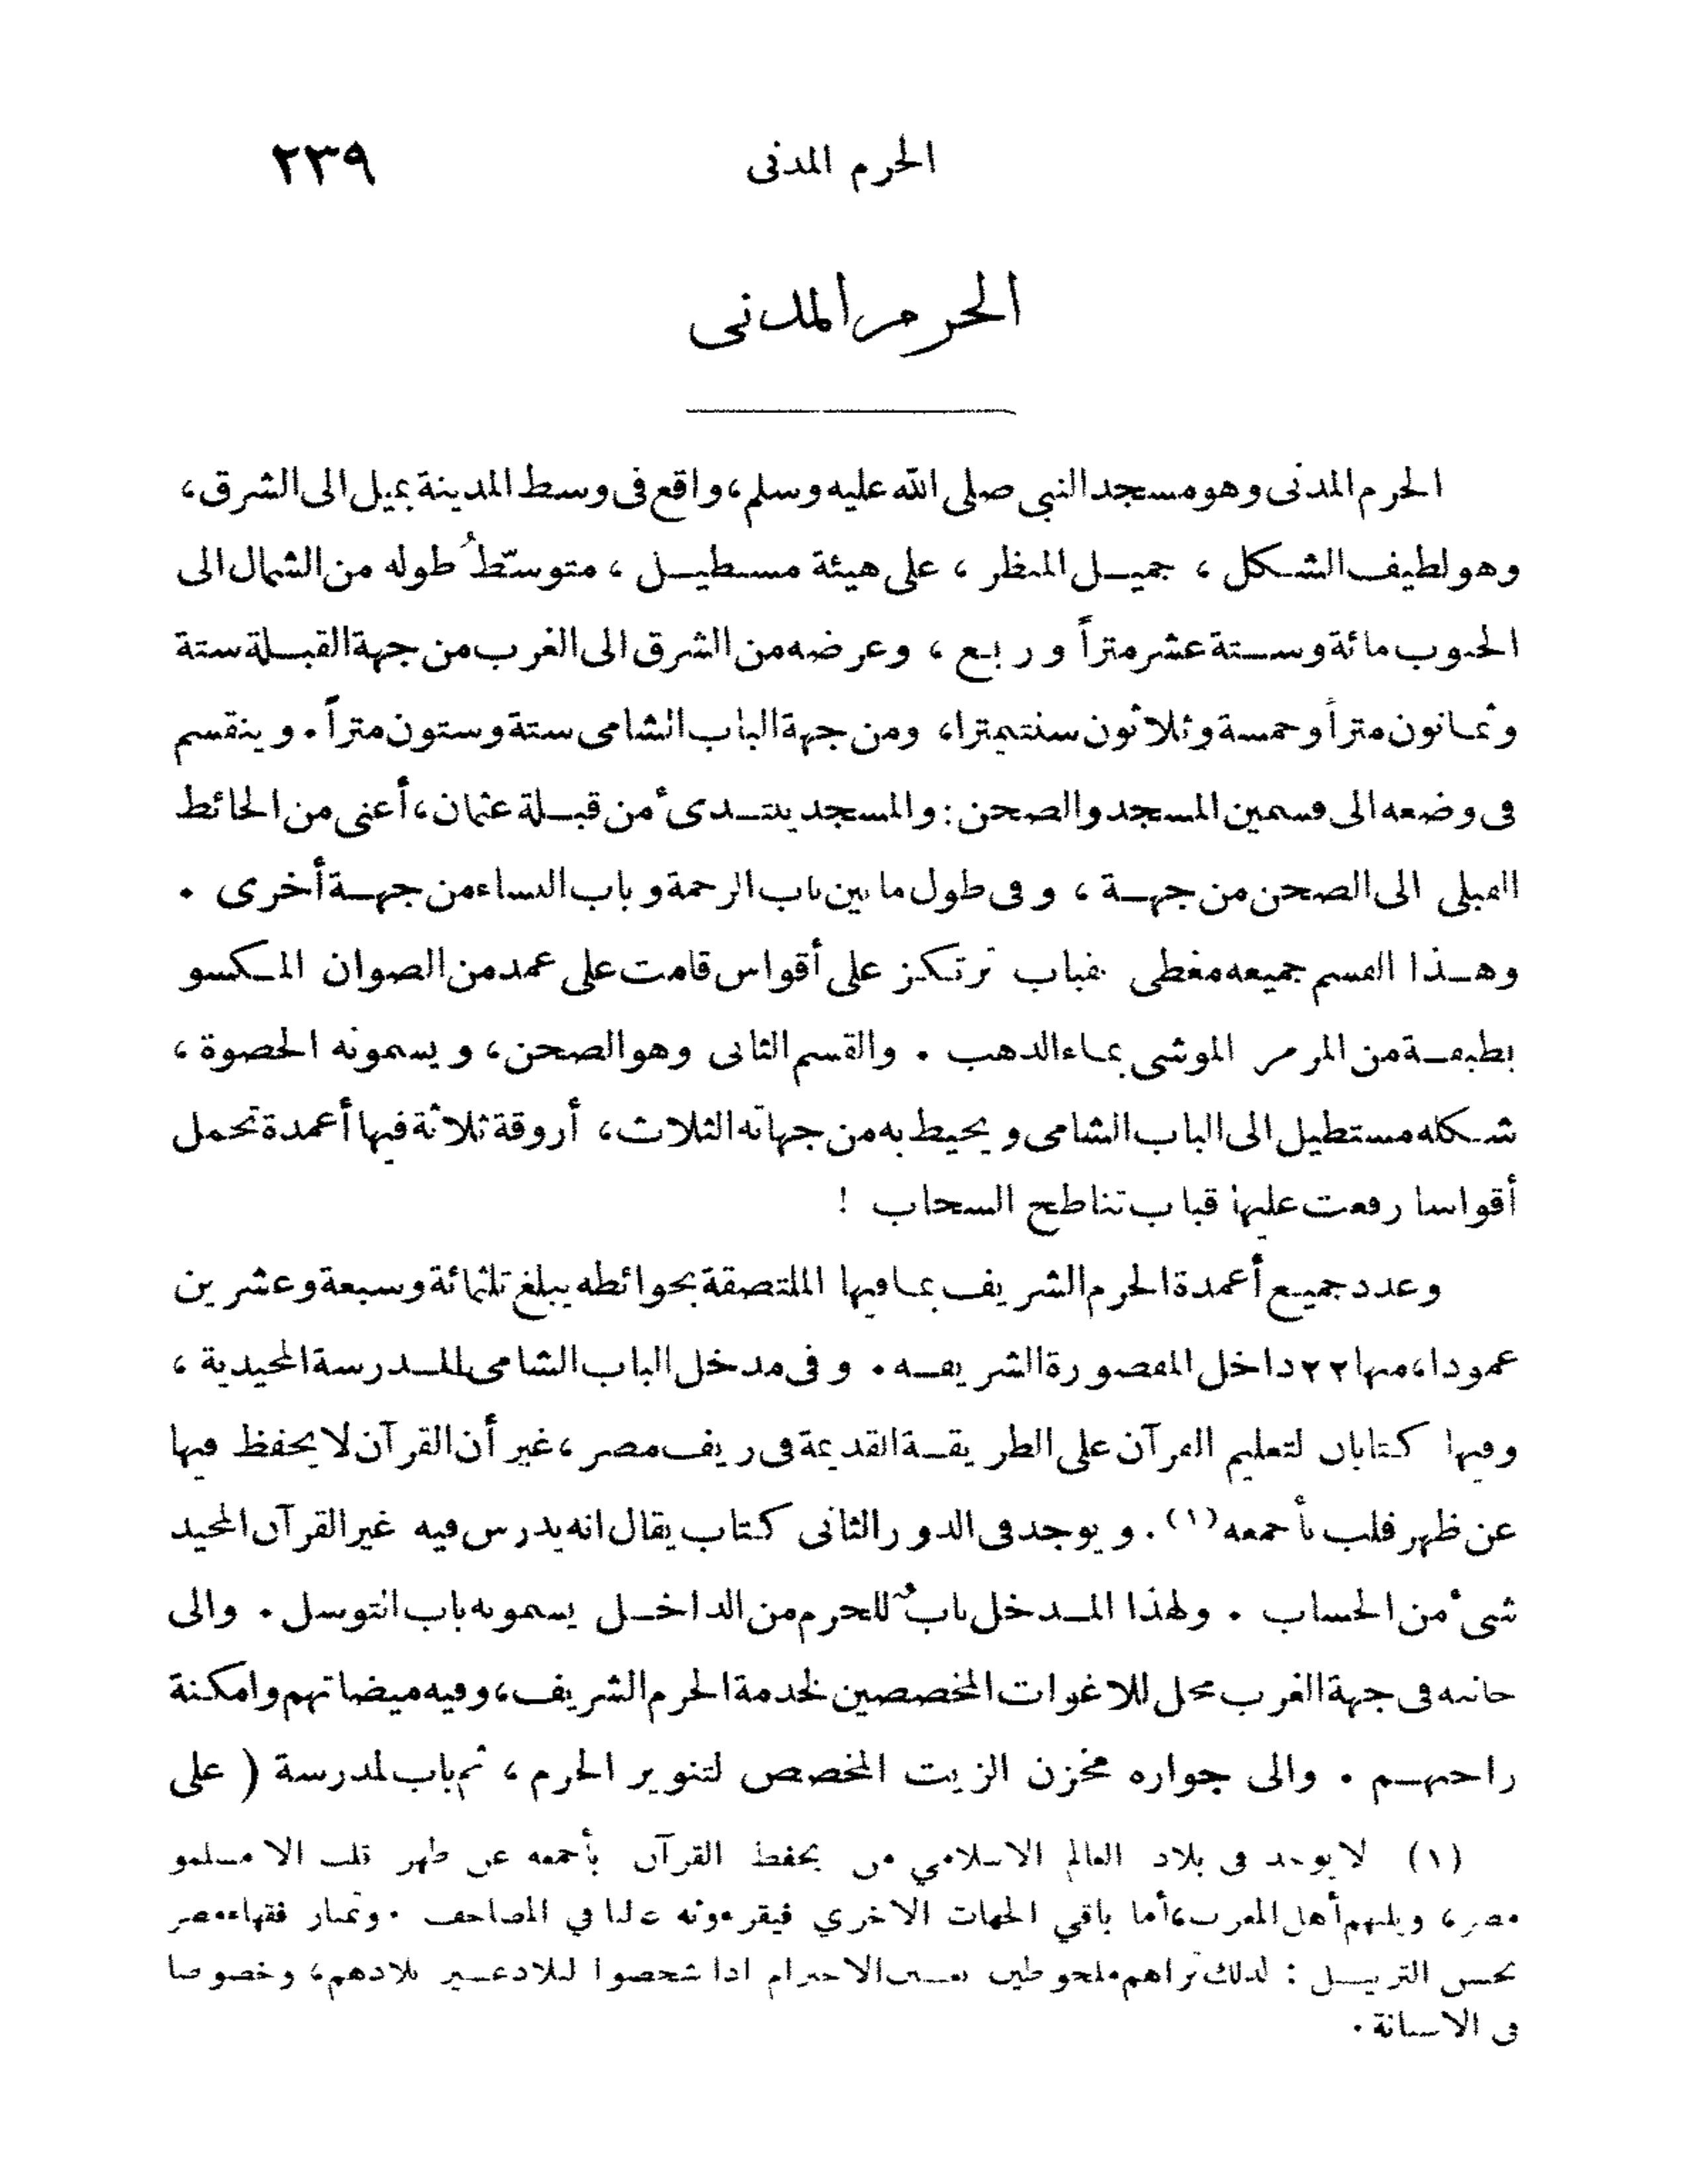 الحرم المدنى ٢٣٩
الحرم المدنى
الحرم المدنى وهو مسجد النبي صلى الله عليه وسلم، واقع فى وسط المدينة بميل الى الشرق،
وهو لطيف الشكل ، جميل المنظر ، على هيئة مستطيل ، متوسّطُ طوله من الشمال الى
الجنوب مائة وستة عشر متراً وربع ، وعرضه من الشرق الى الغرب من جهة القبلة ستة
وثمانون متراً وخمسة وثلاثون سنتيمترا، ومن جهة الباب الشامى ستة وستون متراً . وينقسم
فى وضعه الى قسمين المسجد والصحن : والمسجد يبتدئ من قبلة عثمان، أعنى من الحائط
القبلى الى الصحن من جهة ، وفى طول ما بين باب الرحمة وباب النساء من جهة أخرى .
وهذا القسم جميعه مغطى بقباب ترتكز على أقواس قامت على عمد من الصوان المكسو
بطبقة من المرمر الموشى بماء الذهب . والقسم الثانى وهو الصحن، ويسمونه الحصوة ،
شكله مستطيل الى الباب الشامى ويحيط به من جهاته الثلاث، أروقة ثلاثة فيها أعمدة تحمل
أقواسا رفعت عليها قباب تناطح السحاب !
وعدد جميع أعمدة الحرم الشريف بما فيها الملتصقة بحوائطه يبلغ ثلثمائة وسبعة وعشرين
عمودا، منها ٢٢ داخل المقصورة الشريفه . وفى مدخل الباب الشامى للمدرسة المجيدية ،
وفيها كتابان لتعليم القرآن على الطريقة القديمة فى ريف مصر ، غير أن القرآن لا يحفظ فيها
عن ظهر قلب بأجمعه (١) . ويوجد فى الدور الثانى كتاب يقال انه يدرس فيه غير القرآن المجيد
شئ من الحساب . ولهذا المدخل بابٌ للحرم من الداخل يسمونه باب التوسل . والى
جانبه فى جهة الغرب محل للاغوات المخصصين لخدمة الحرم الشريف، وفيه ميضاتهم وامكنة
راحتهم . والى جواره مخزن الزيت المخصص لتنوير الحرم ، ثم باب لمدرسة ( على
(١) لا يوجد فى بلاد العالم الاسلامي من يحفظ القرآن بأجمعه عن ظهر قلب الا مسلمو
مصر ، ويليهم أهل المغرب، أما باقي الجهات الاخري فيقرءونه غالبا في المصاحف . وتمتاز فقهاء مصر
بحسن الترتيل : لذلك تراهم ملحوظين بعين الاحترام اذا شخصوا لبلاد غير بلادهم، وخصوصا
فى الاستانة .